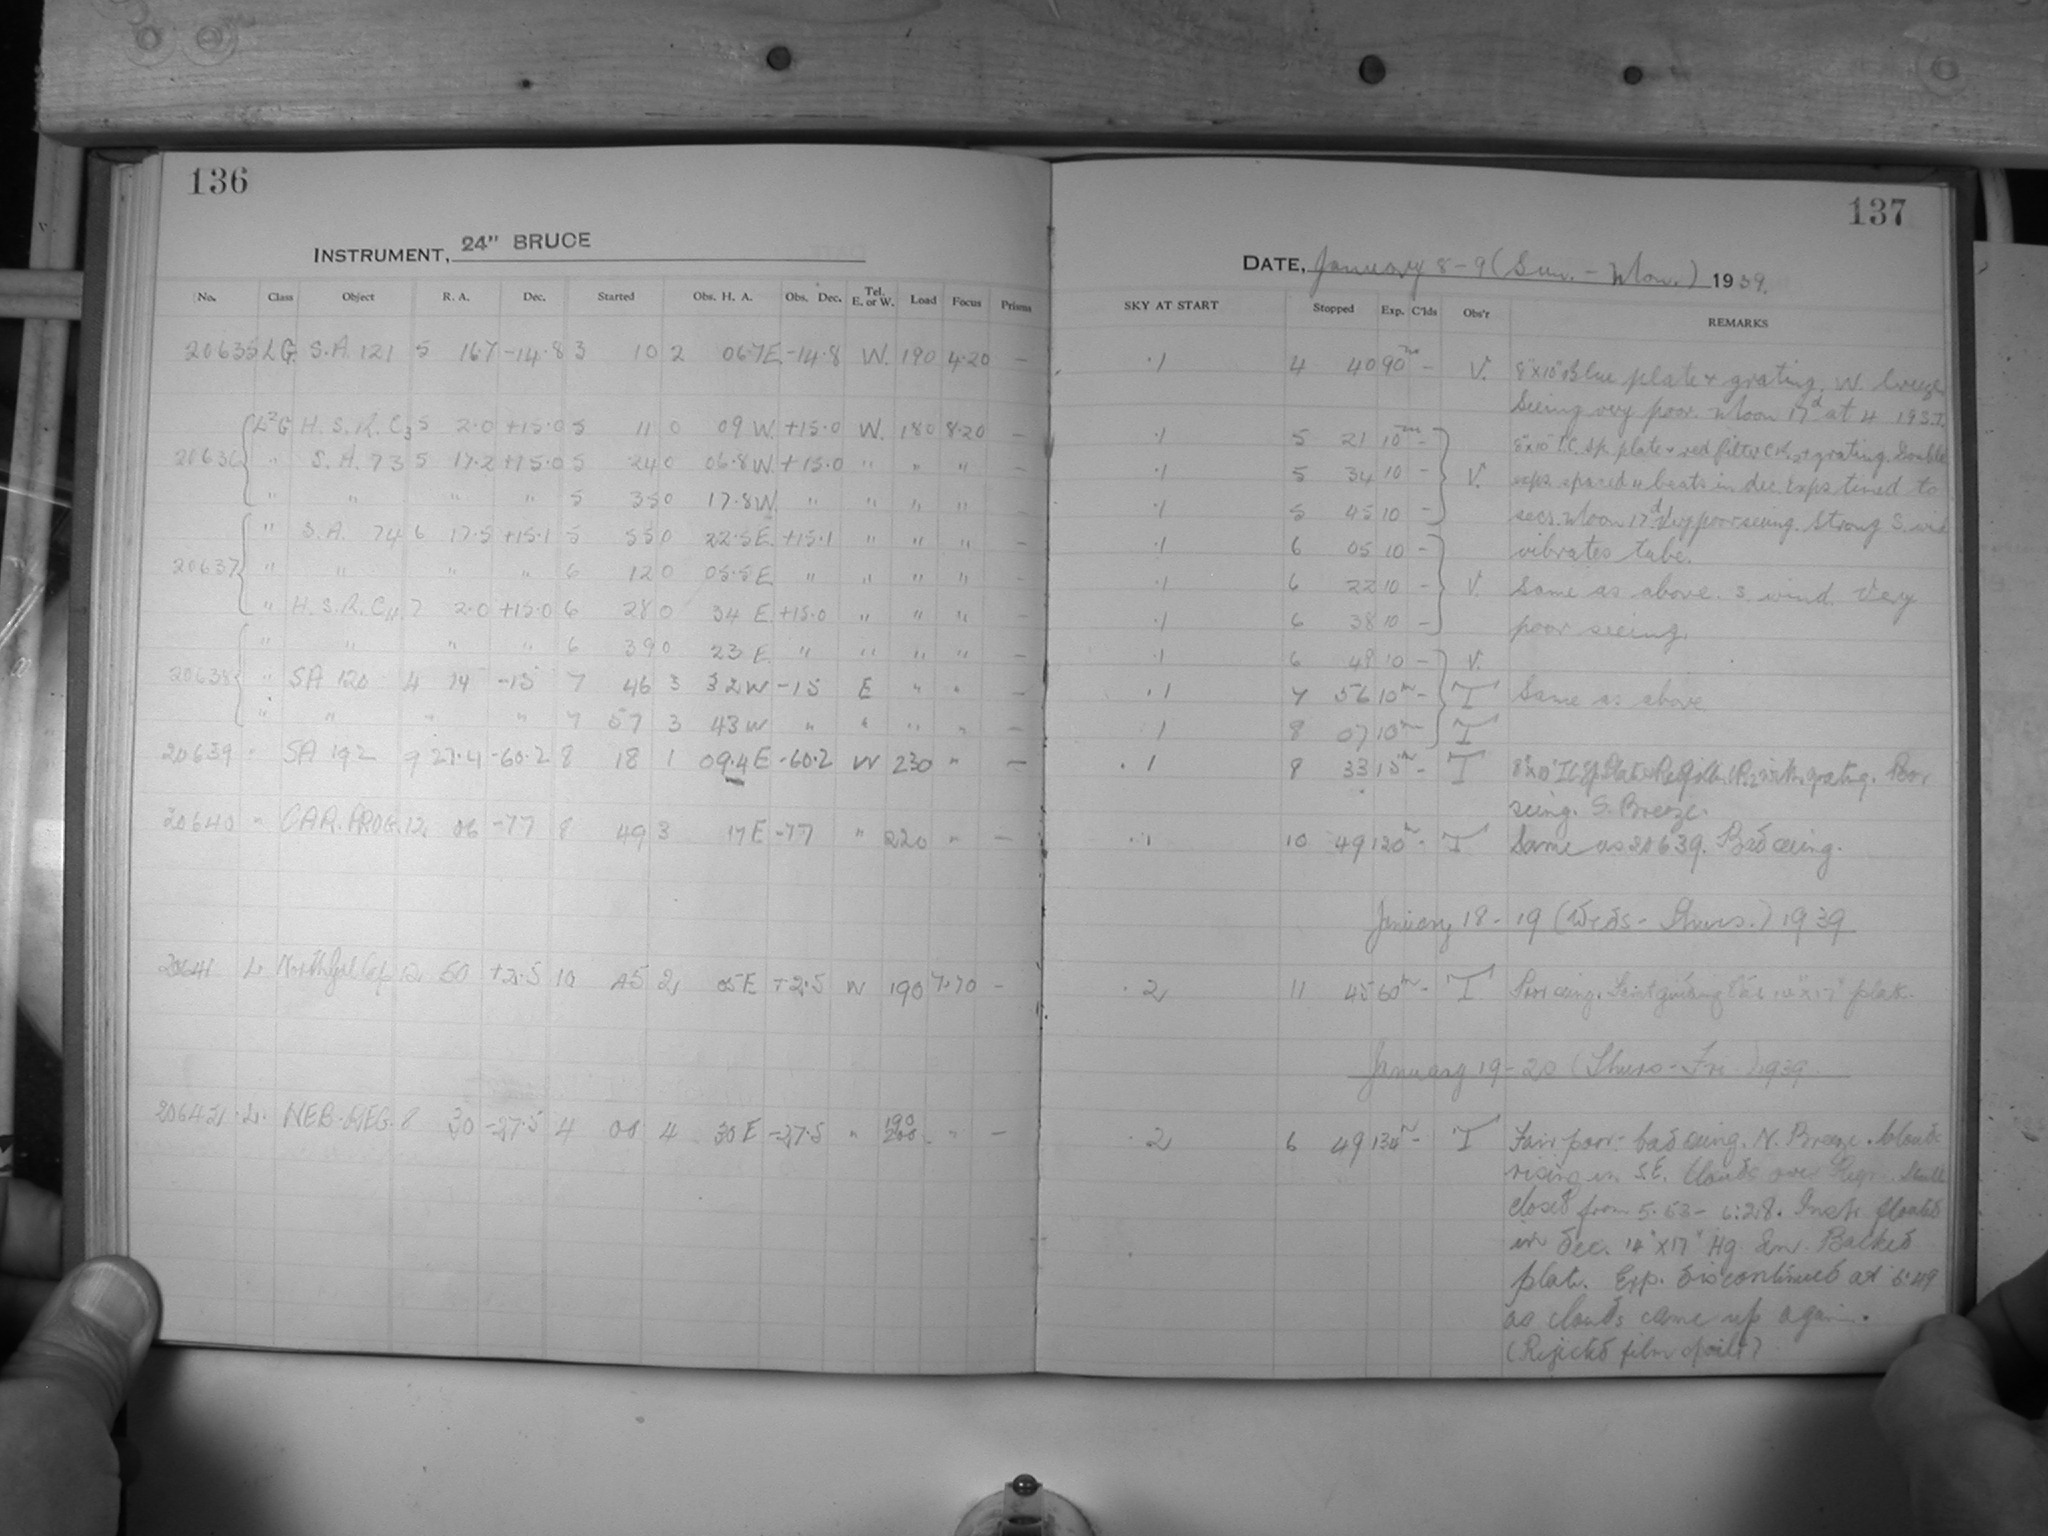 136
INSTRUMENT, 24" BRUCE
No. Class Object R. A. Dec. Started Obs. H. A. Obs. Dec. Tel. E. or W. Load Focus Prisms
20635 LG S.A. 121 5 16.7 -14.8 3 10 2 06.7E -14.8 W. 190 4.20 –
20636 L²G H.S.R. C3 5 2.0 +15.0 5 11 0 09 W. +15.0 W. 180 8.20 –
" S.A. 73 5 17.2 +15.0 5 24 0 06.8W. +15.0 " " " –
" " " " 5 35 0 17.8W. " " " " –
20637 " S.A. 74 6 17.5 +15.1 5 55 0 22.5E. +15.1 " " " –
" " " " 6 12 0 05.5E " " " " –
" H.S.R. C4 7 2.0 +15.0 6 28 0 34 E +15.0 " " " –
20638 " " " " 6 39 0 23 E " " " " –
" SA 120 4 14 -15 7 46 3 32W -15 E " " –
" " " " 7 57 3 43W " " " " –
20639 " SA 192 9 27.4 -60.2 8 18 1 09.4E -60.2 W 230 " –
20640 " CAR. PROG. 12 06 -77 8 49 3 17E -77 " 220 " –
20641 L. North Gal Cap 12 50 +2.5 10 45 2 05E +2.5 W 190 7.70 –
20642 L. NEB. REG. 8 30 -27.5 4 00 4 30E -27.5 " 190 200 " –
137
DATE, January 8-9 (Sun. - Mon.) 1939.
SKY AT START Stopped Exp. C'lds Obs'r REMARKS
.1 4 40 90m – V. 8"x10" Blue plate & grating. W. breeze
Seeing very poor. Moon 17d at 4 19 S.T.
.1 5 21 10m – 8"x10" I.C. Sp. plate & red filter CR2 & grating. Double
.1 5 34 10 – V. exps. spaced 4 beats in dec. Exps timed to
.1 5 45 10 – secs. Moon 17d. Very poor seeing. Strong S. wind
.1 6 05 10 – vibrates tube.
.1 6 22 10 – V. Same as above. S. wind. Very
.1 6 38 10 – poor seeing.
.1 6 49 10 – V.
.1 7 56 10m – T Same as above.
.1 8 07 10m – T
.1 8 33 15m – T 8"x10" I.C. Sp. Plate & Red filter CR2 with grating. Poor
seeing. S. Breeze.
.1 10 49 120m – T Same as 20639. Bad seeing.
January 18-19 (Weds - Thurs.) 1939
.2 11 45 60m – T Poor seeing. Faint guiding 14"x17" plate.
January 19-20 (Thurs - Fri.) 1939
.2 6 49 134m – T Fair poor - bad seeing. N. Breeze. Clouds
rising in S.E. Clouds over Reg.
closed from 5.53 - 6:28. Instr. floated
in Dec. 14"x17" Hg Backed
plate. Exp. discontinued at 6:49
as clouds came up again.
(Rejected film spoilt)